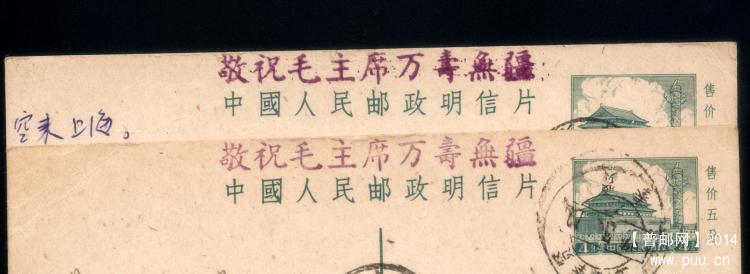 敬祝毛主席万壽無疆
中國人民邮政明信片
售价
上海。
敬祝毛主席万壽無疆
中國人民邮政明信片
售价五
【普邮网】2014
www.puu.cn